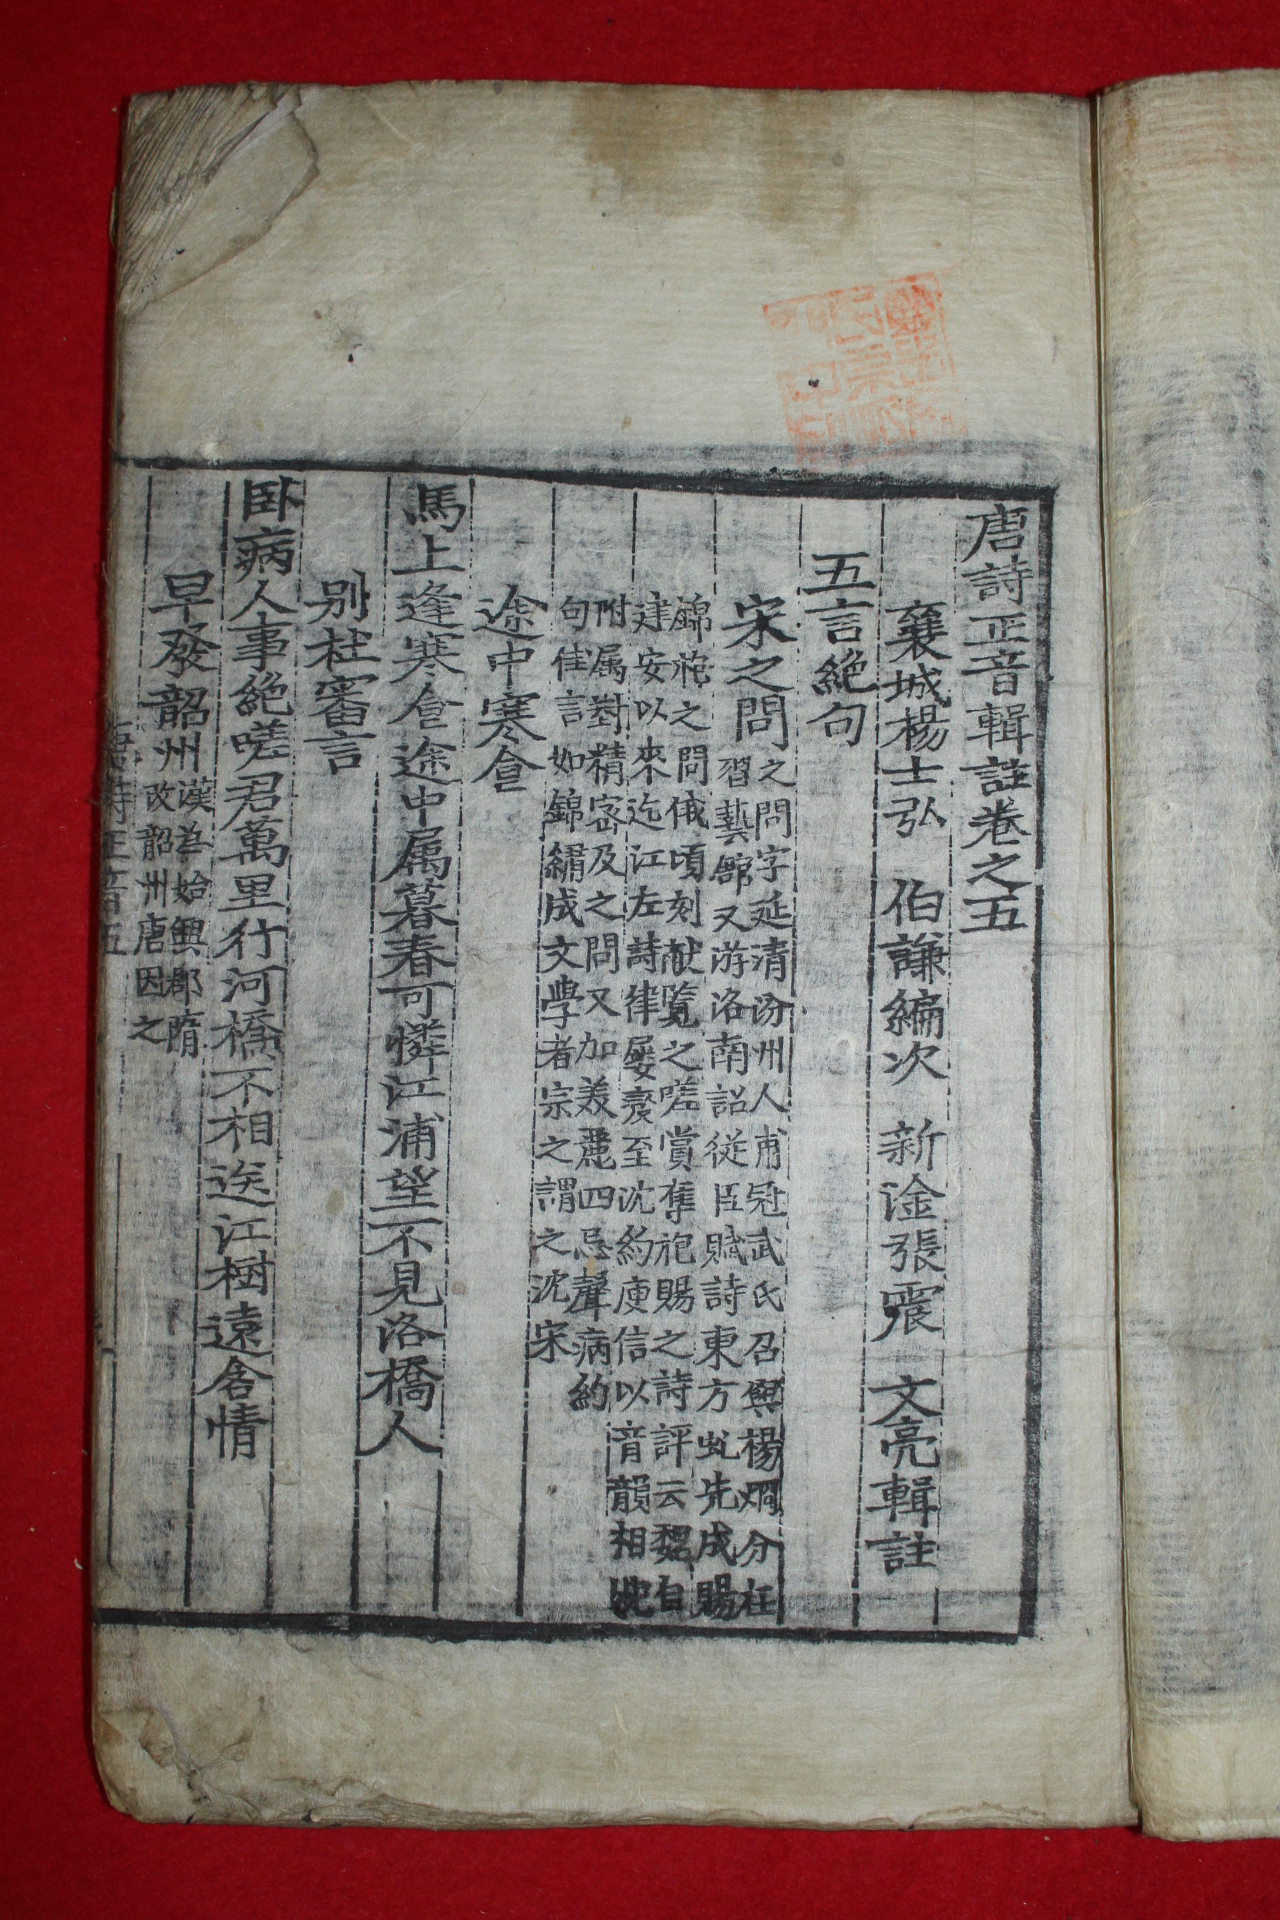 唐詩正音輯註卷之五
襄城楊士弘 伯謙編次 新淦張震 文亮輯註
五言絶句
宋之問 之問字延清汾州人甫冠武氏召與楊烱分在
習藝館又游洛南詔從臣賦詩東方虬先成賜
錦袍之問俄頃刻献覽之嗟賞奪袍賜之詩評云魏自
建安以來迄江左詩律屡変至沈約庾信以音韻相
附属對精密及之問又加美麗四忌聲病約
句佳言如錦繡成文學者宗之謂之沈宋
途中寒食
馬上逢寒食途中属暮春可憐江浦望不見洛橋人
别杜審言
卧病人事絶嗟君萬里行河橋不相送江樹遠含情
早發韶州 漢為始興郡隋
改韶州唐因之
唐詩正音五